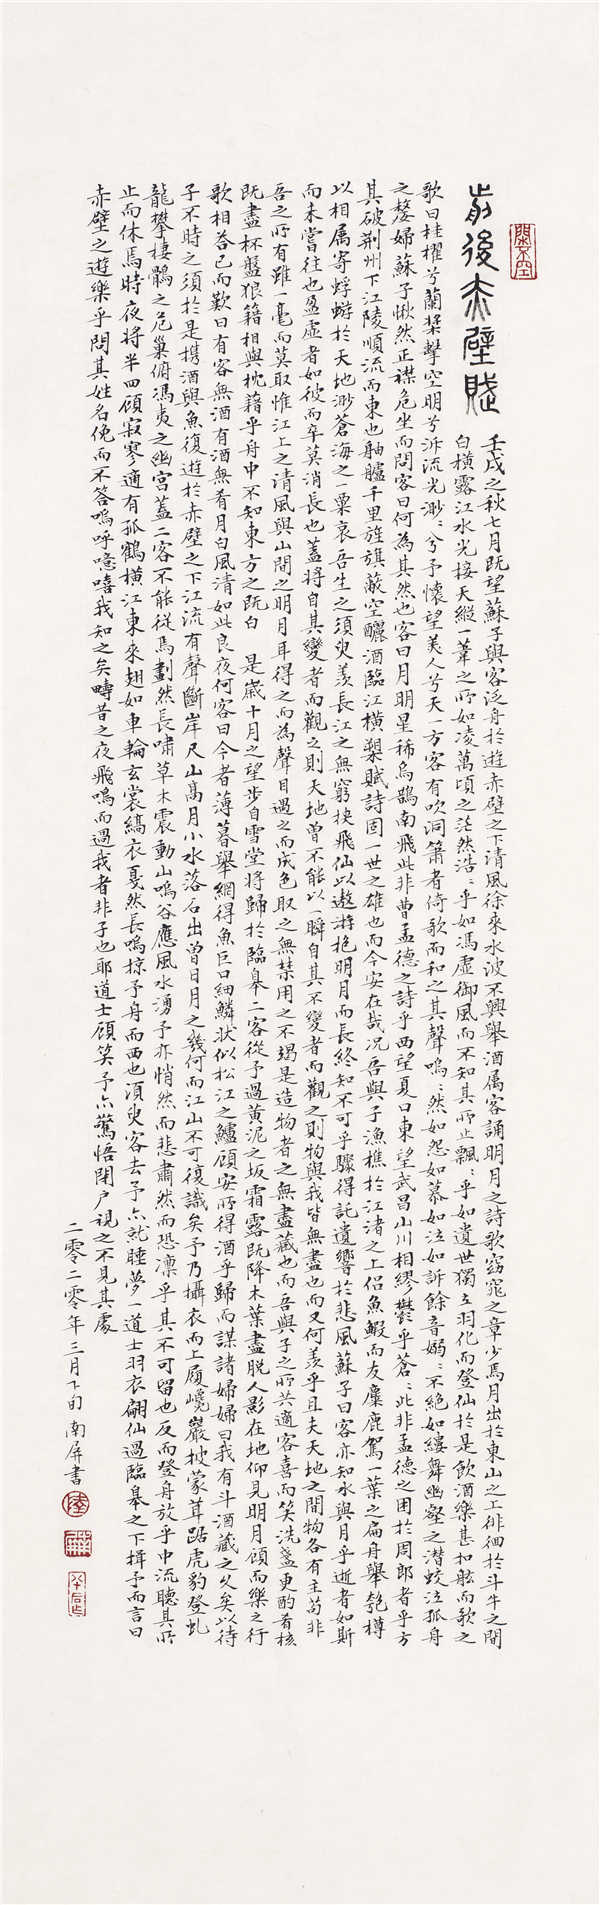 前後赤壁賦
壬戌之秋七月既望蘇子與客泛舟於遊赤壁之下清風徐來水波不興舉酒属客誦明月之詩歌窈窕之章少焉月出於東山之上徘徊於斗牛之間
白橫露江水光接天縱一葦之所如凌萬頃之茫然浩〻乎如馮虛御風而不知其所止飄〻乎如遺世獨立羽化而登仙於是飲酒樂甚扣舷而歌之
歌曰桂櫂兮蘭槳擊空明兮泝流光渺〻兮予懷望美人兮天一方客有吹洞簫者倚歌而和之其聲嗚〻然如怨如慕如泣如訴餘音嫋〻不絕如縷舞幽壑之潛蛟泣孤舟
之嫠婦蘇子愀然正襟危坐而問客曰何為其然也客曰月明星稀烏鵲南飛此非曹孟德之詩乎西望夏口東望武昌山川相繆鬱乎蒼〻此非孟德之困於周郎者乎方
其破荆州下江陵順流而東也舳艫千里旌旗蔽空釃酒臨江橫槊賦詩固一世之雄也而今安在哉況吾與子漁樵於江渚之上侣魚鰕而友麋鹿駕一葉之扁舟舉匏樽
以相属寄蜉蝣於天地渺蒼海之一粟哀吾生之須臾羡長江之無窮挾飛仙以遨游抱明月而長終知不可乎驟得託遺響於悲風蘇子曰客亦知水與月乎逝者如斯
而未嘗往也盈虛者如彼而卒莫消長也蓋將自其變者而觀之則天地曾不能以一瞬自其不變者而觀之則物與我皆無盡也而又何羡乎且夫天地之間物各有主苟非
吾之所有雖一毫而莫取惟江上之清風與山間之明月耳得之而為聲目遇之而成色取之無禁用之不竭是造物者之無盡藏也而吾與子之所共適客喜而笑洗盞更酌肴核
既盡杯盤狼籍相與枕藉乎舟中不知東方之既白 是歲十月之望步自雪堂將歸於臨皋二客從予過黃泥之坂霜露既降木葉盡脫人影在地仰見明月顧而樂之行
歌相答已而歎曰有客無酒有酒無肴月白風清如此良夜何客曰今者薄暮舉網得魚巨口細鱗狀似松江之鱸顧安所得酒乎歸而謀諸婦婦曰我有斗酒藏之久矣以待
子不時之須於是攜酒與魚復遊於赤壁之下江流有聲斷岸尺山高月小水落石出曾日月之幾何而江山不可復識矣予乃攝衣而上履巉巖披蒙茸踞虎豹登虬
龍攀棲鶻之危巢俯馮夷之幽宮蓋二客不能從焉劃然長嘯草木震動山鳴谷應風水湧予亦悄然而悲肅然而恐凛乎其不可留也反而登舟放乎中流聽其所
止而休焉時夜將半四顧寂寥適有孤鶴橫江東來翅如車輪玄裳縞衣戛然長鳴掠予舟而西也須臾客去予亦就睡夢一道士羽衣翩仙過臨皋之下揖予而言曰
赤壁之遊樂乎問其姓名俛而不答嗚呼噫嘻我知之矣疇昔之夜飛鳴而過我者非子也耶道士顧笑予亦驚悟開户視之不見其處
二零二零年三月下旬南屏書